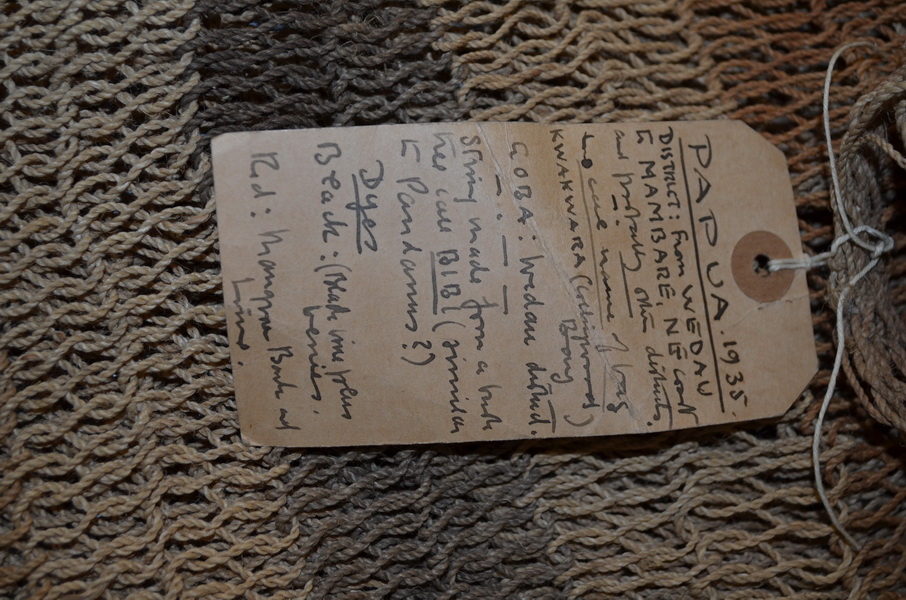 PAPUA. 1935.
DISTRICT: From WEDAU
to MAMBARE NE Coast
and probably other districts.
name of bag
KWAKWARA (Bay)
GOBA: Wedau district.
String made from a bush
tree call BIBI (similar
to Pandanus?)
Dyes
Black: (Black vine plus
berries.
Red: Mangrove Bark and
Lime.